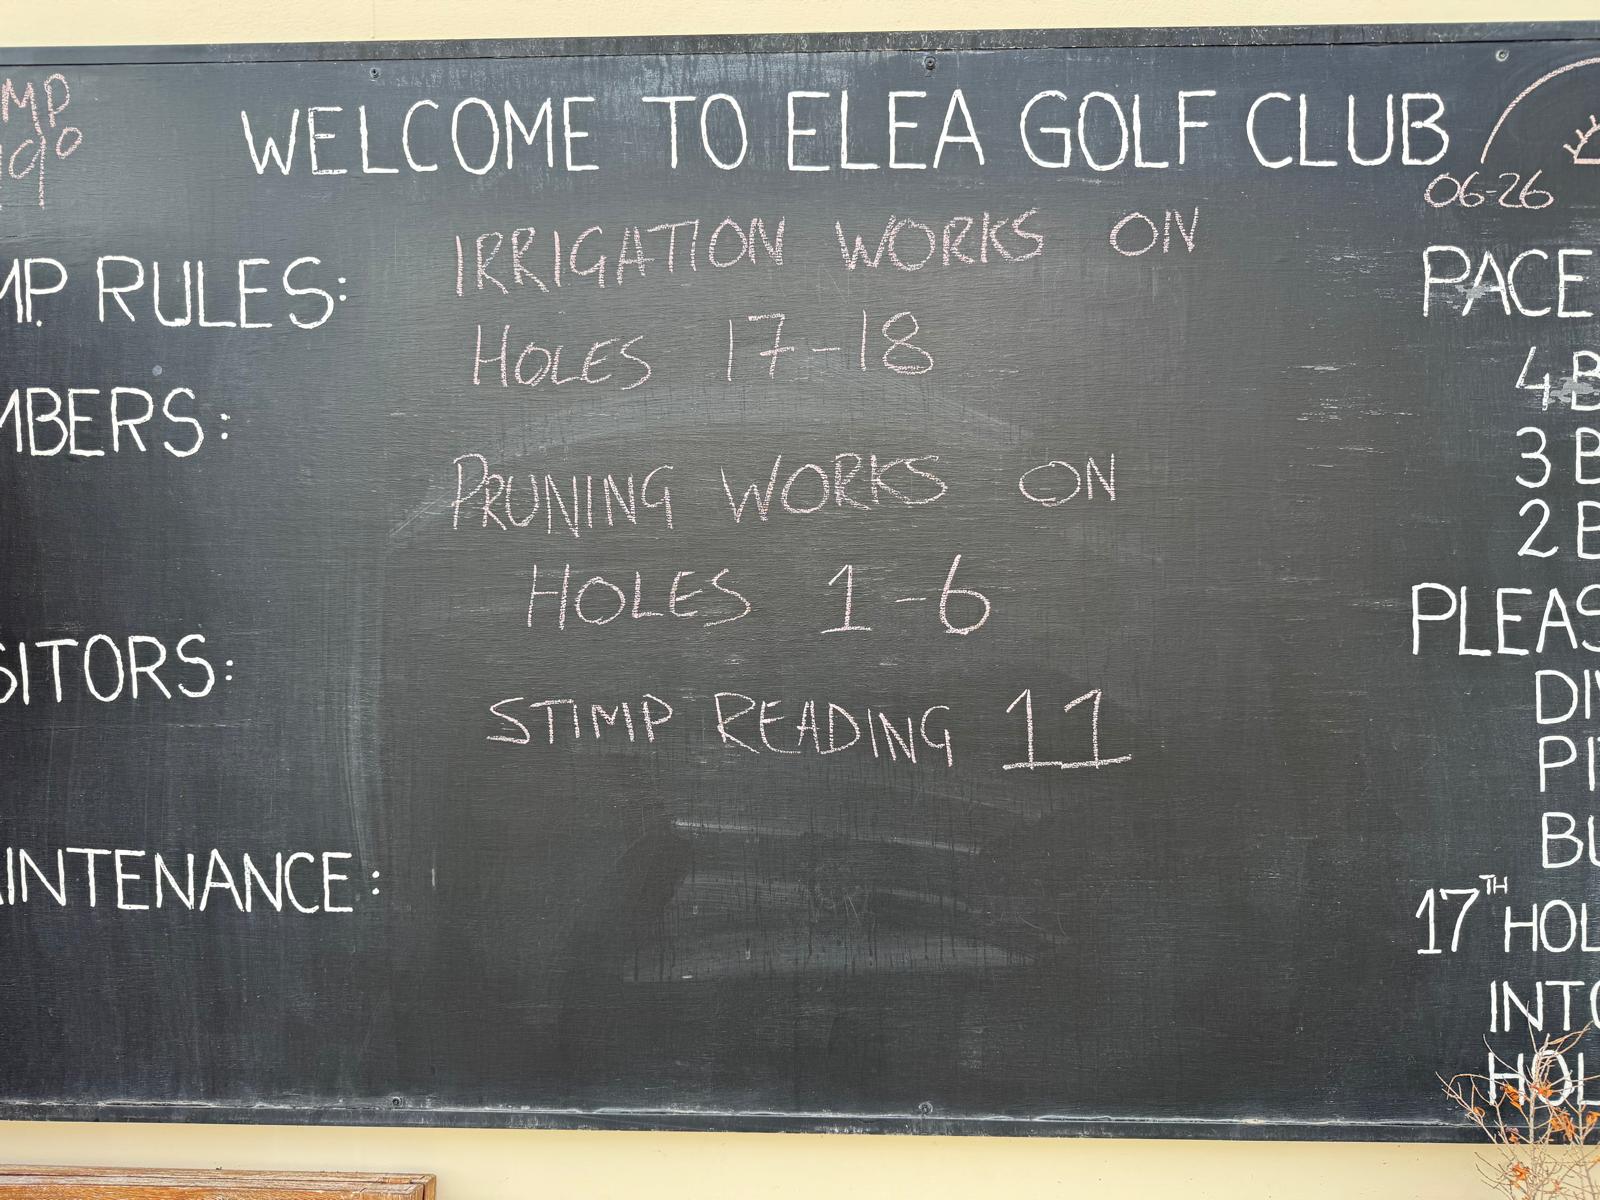 WELCOME TO ELEA GOLF CLUB
06-26
IRRIGATION WORKS ON
HOLES 17-18
PRUNING WORKS ON
HOLES 1-6
STIMP READING 11
MP. RULES:
MBERS:
SITORS:
INTENANCE:
PACE
4 B
3 B
2 B
PLEAS
DIV
PIT
BU
17TH HOL
INTO
HOL